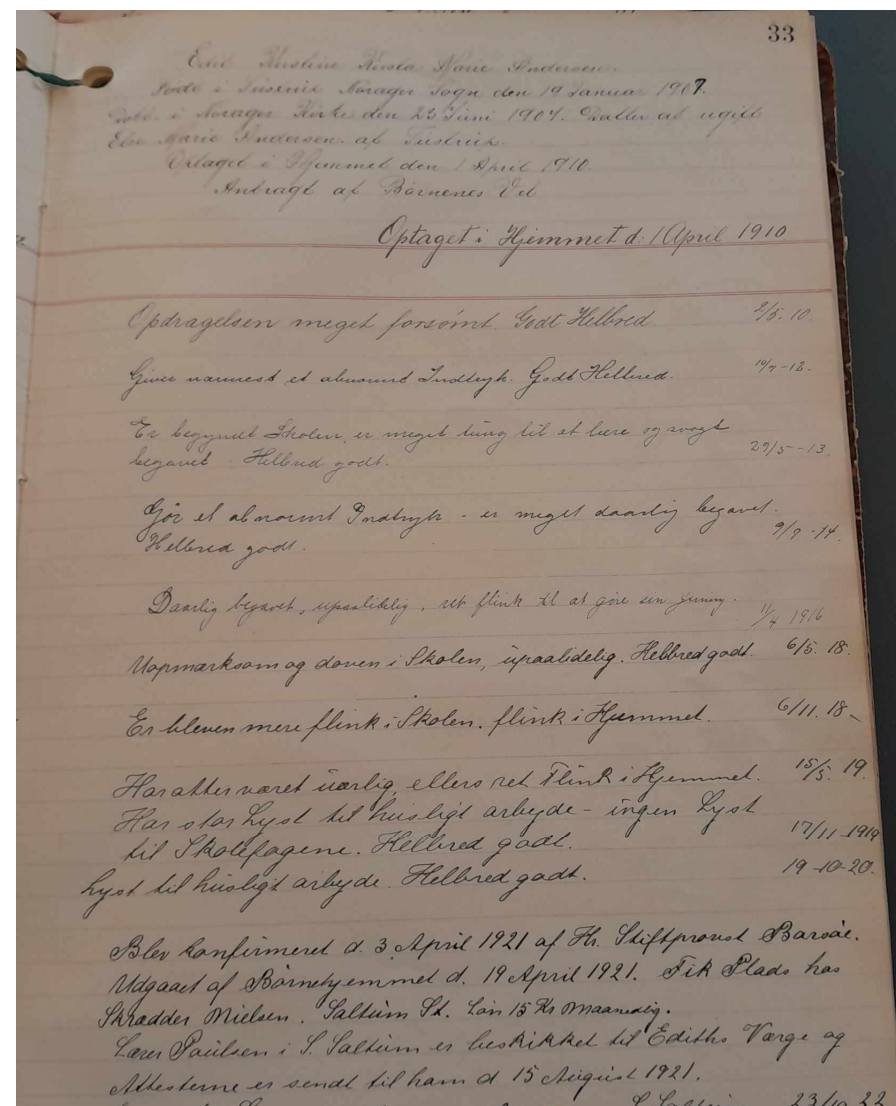 33
Kirstine Marie Andersen.
Født i Norager Sogn den 19 Januar 1907.
Døbt i Norager Kirke den 23 Juni 1907. Datter af ugift
Else Marie Andersen af
Optaget i Hjemmet den 1 April 1910.
Antragt af Børnenes Vel
Optaget i Hjemmet d. 1 April 1910
Opdragelsen meget forsömt. Godt Helbred 2/5. 10.
Giver nærmest et abnormt Indtryk. Godt Helbred. -12.
Er begyndt Skolen, er meget tung til at lære og svagt
begavet. Helbred godt. 29/5 -13.
Gör et abnormt Indtryk - er meget daarlig begavet.
Helbred godt. 9/9 -14.
Daarlig begavet, upaalidelig, ret flink til at göre sin Gjerning.
11/4 1916
Uopmærksom og doven i Skolen, upaalidelig. Helbred godt. 6/5. 18.
Er bleven mere flink i Skolen. flink i Hjemmet. 6/11. 18 -
Har atter været uærlig, ellers ret flink i Hjemmet. 15/5. 19.
Har stor Lyst til husligt arbejde - ingen Lyst
til Skolefagene. Helbred godt. 17/11-1919
Lyst til husligt arbejde. Helbred godt. 19-10-20.
Blev konfirmeret d. 3 April 1921 af Hr. Stiftprovst Barsöe.
Udgaaet af Börnehjemmet d. 19 April 1921. Fik Plads hos
Skrædder Nielsen. Saltum St. Lön 15 Kr Maanedlig.
Lærer Paulsen i S. Saltum er beskikket til Ediths Værge og
Attesterne er sendt til ham d 15 August 1921.
23/10 22